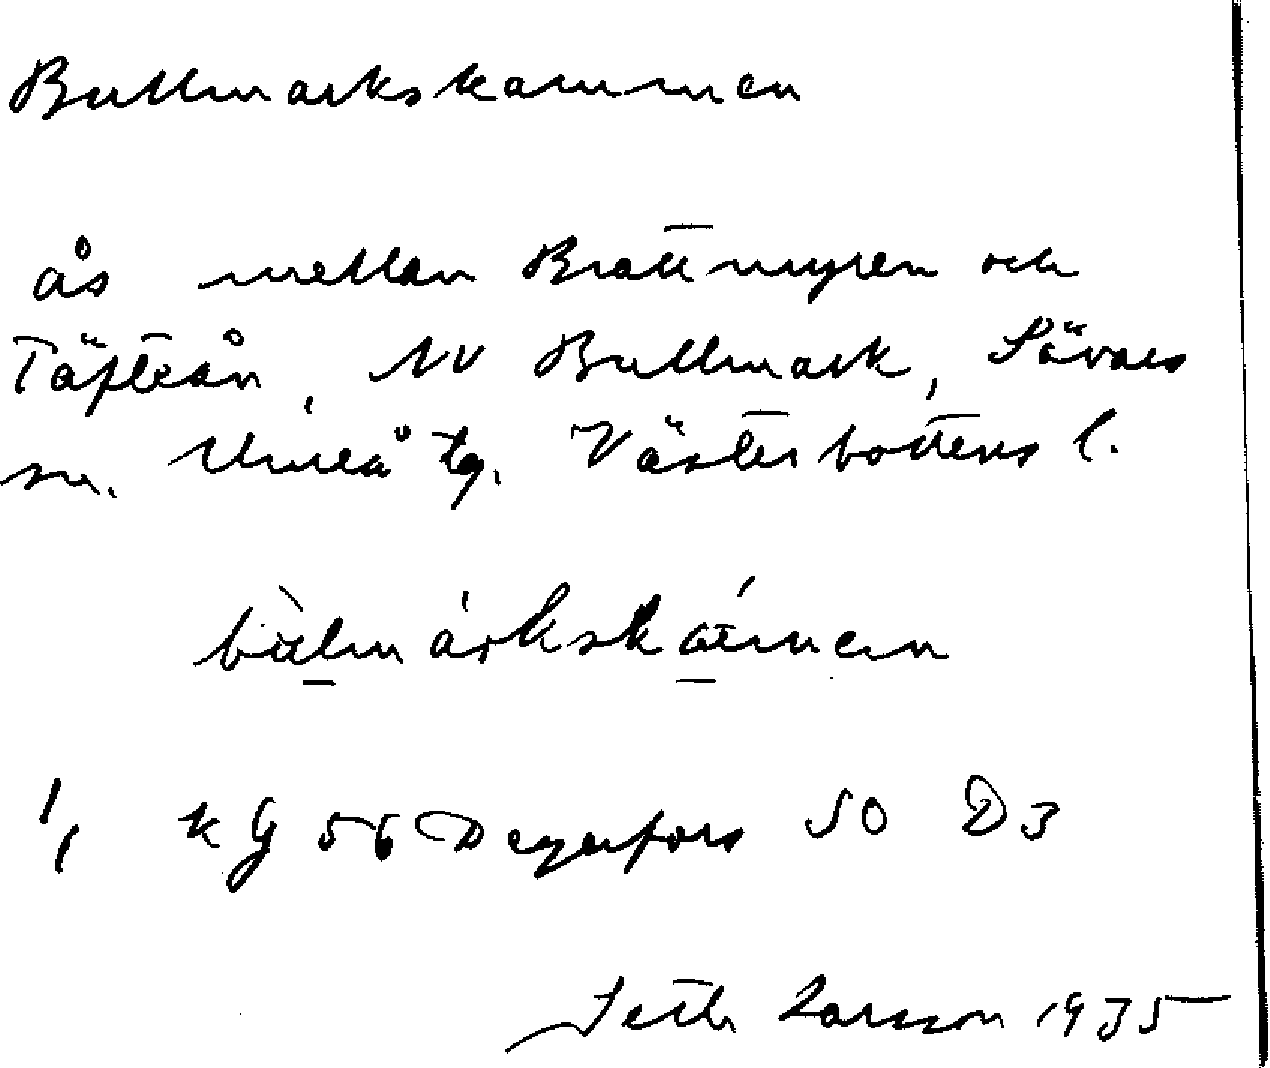 Bullmarkskammen
ås mellan Brattmyren och
Täfteån, NV Bullmark, Sävars
sn. Umeå tg. Västerbottens l.
1, KG 56 Degerfors SO D3
Seth Larsson 1935